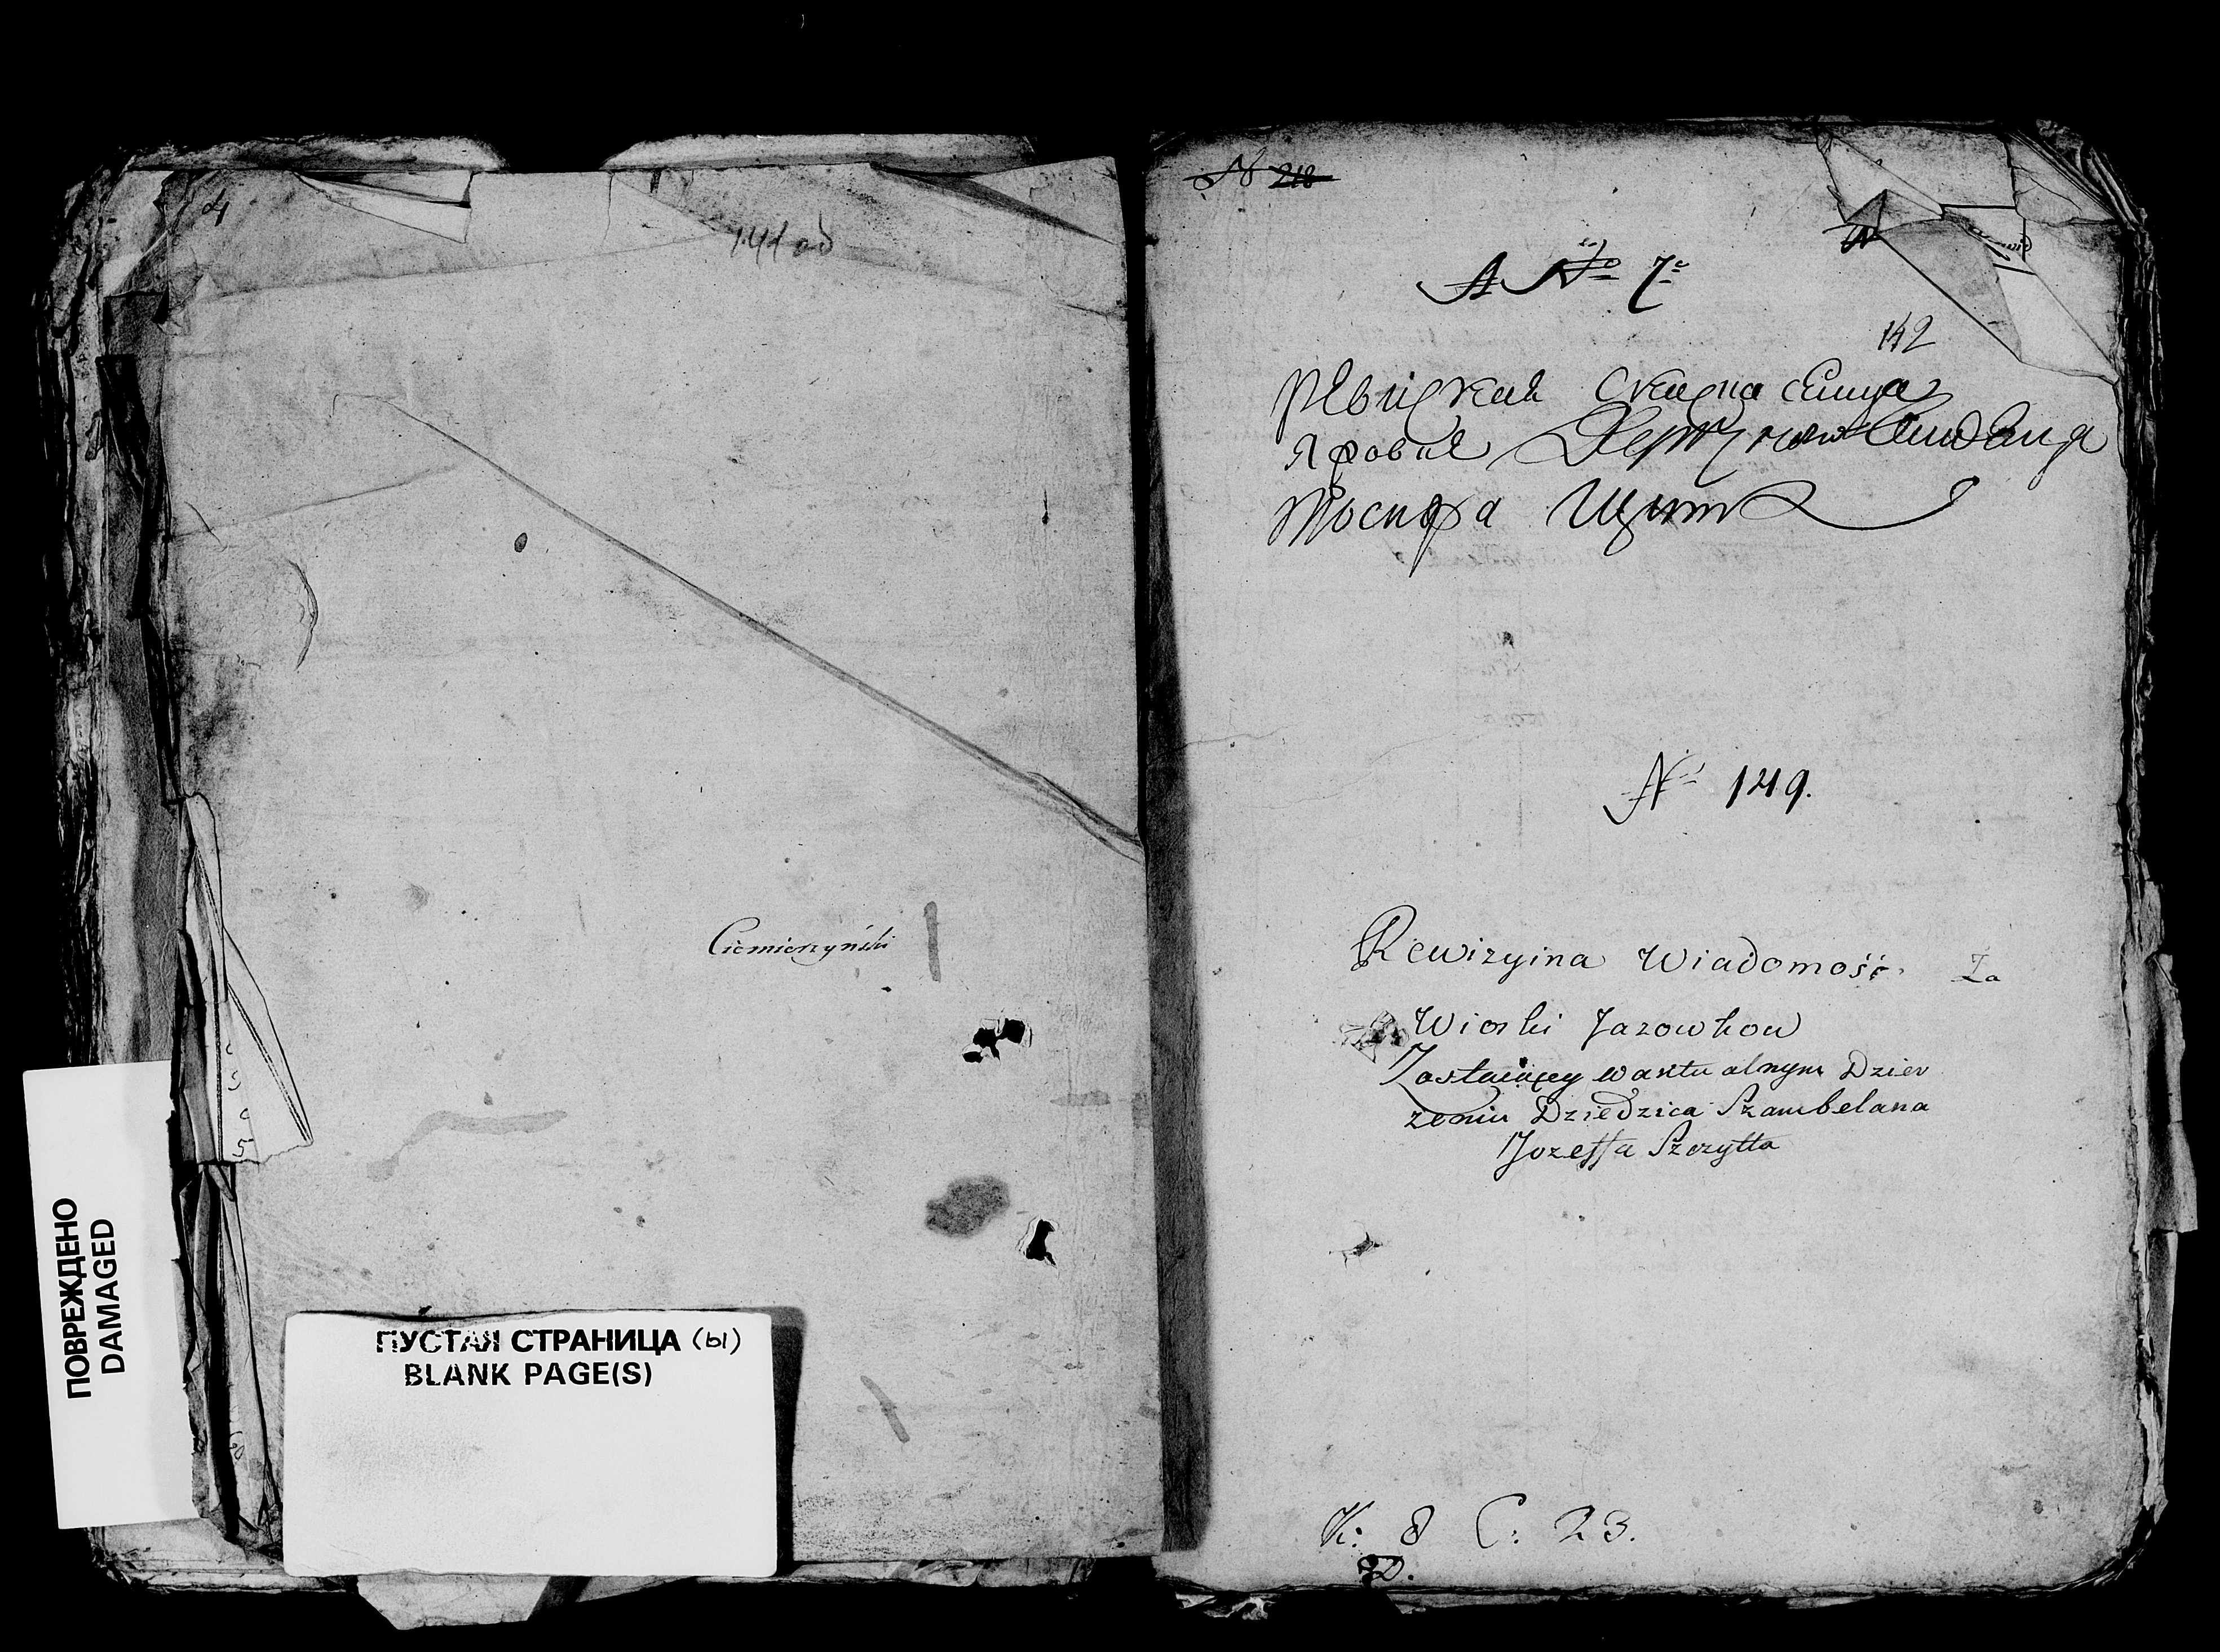 4
141 об
Ciemierzyński
ПОВРЕЖДЕНО
DAMAGED
ПУСТАЯ СТРАНИЦА (ы)
BLANK PAGE(S)
N 218
A No 7
142
Ревизкая Сказка
Иосифа Щита
N 149.
Rewizyina Wiadomość Za
Wioski Jazowkow
Zostaiącey w aktualnym Dzier
zeniu Dziedzica Szambelana
Jozeffa Szczytta
K: 8 C: 23.